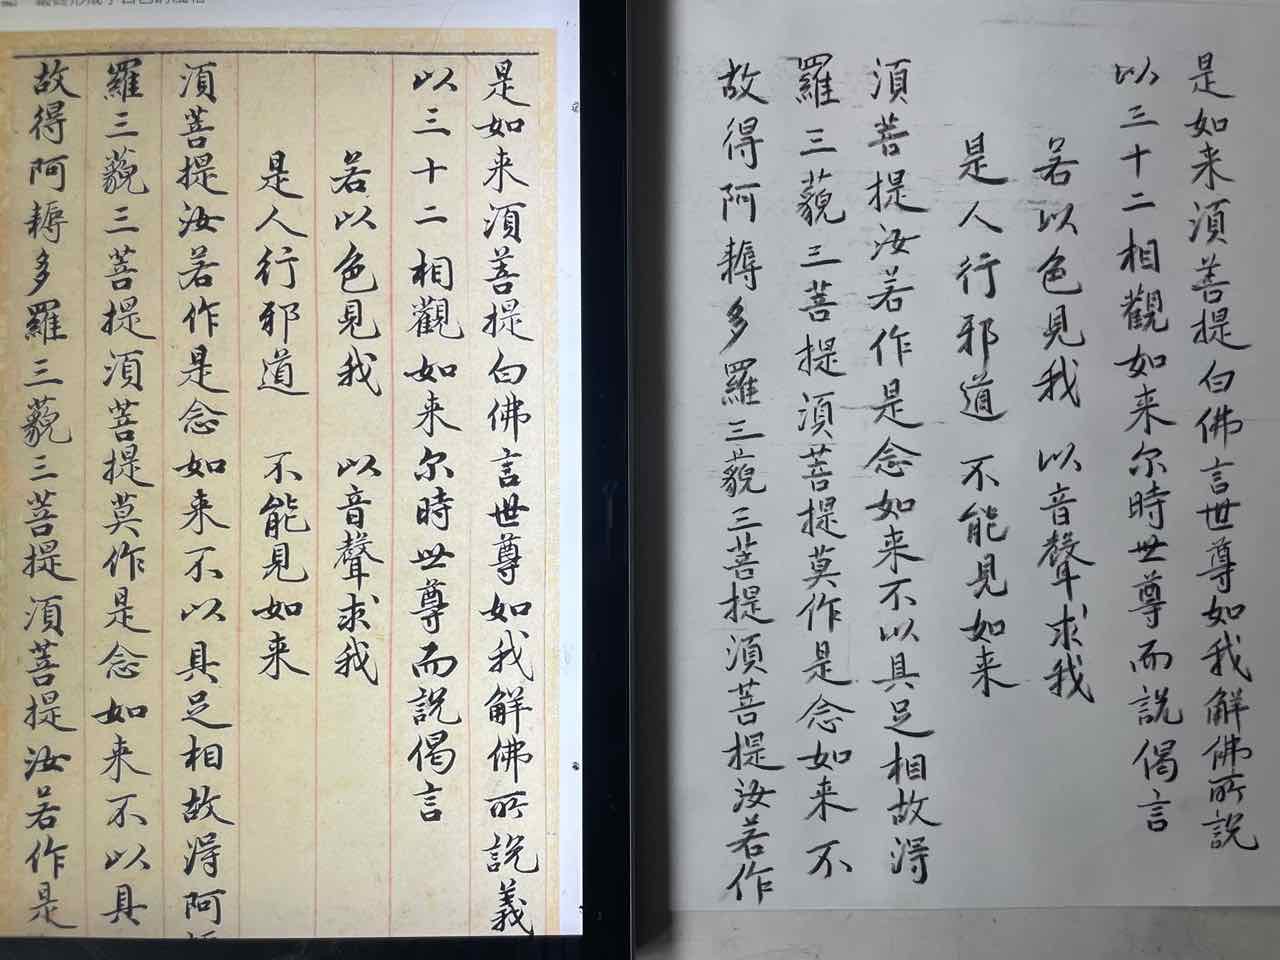 是如来須菩提白佛言世尊如我解佛所説義
以三十二相觀如来尔時世尊而説偈言
若以色見我 以音聲求我
是人行邪道 不能見如来
須菩提汝若作是念如来不以具足相故得阿
羅三藐三菩提須菩提莫作是念如来不以具
故得阿耨多羅三藐三菩提須菩提汝若作是
是如来須菩提白佛言世尊如我解佛所説
以三十二相觀如来尔時世尊而説偈言
若以色見我 以音聲求我
是人行邪道 不能見如来
須菩提汝若作是念如来不以具足相故得
羅三藐三菩提須菩提莫作是念如来不
故得阿耨多羅三藐三菩提須菩提汝若作